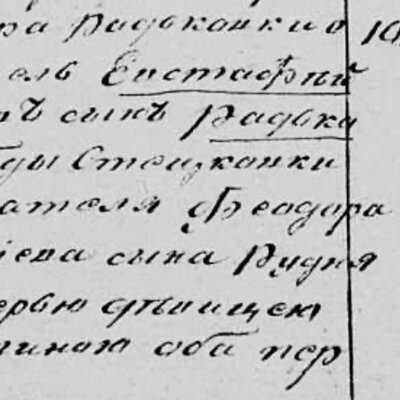 ра Радьковки о 10
ель Евстафий
ъ сынъ Радьки
ды Стецковки
ателя Ѳеодора
іева сына Рудня
ервю дѣвицею
иною оба пер